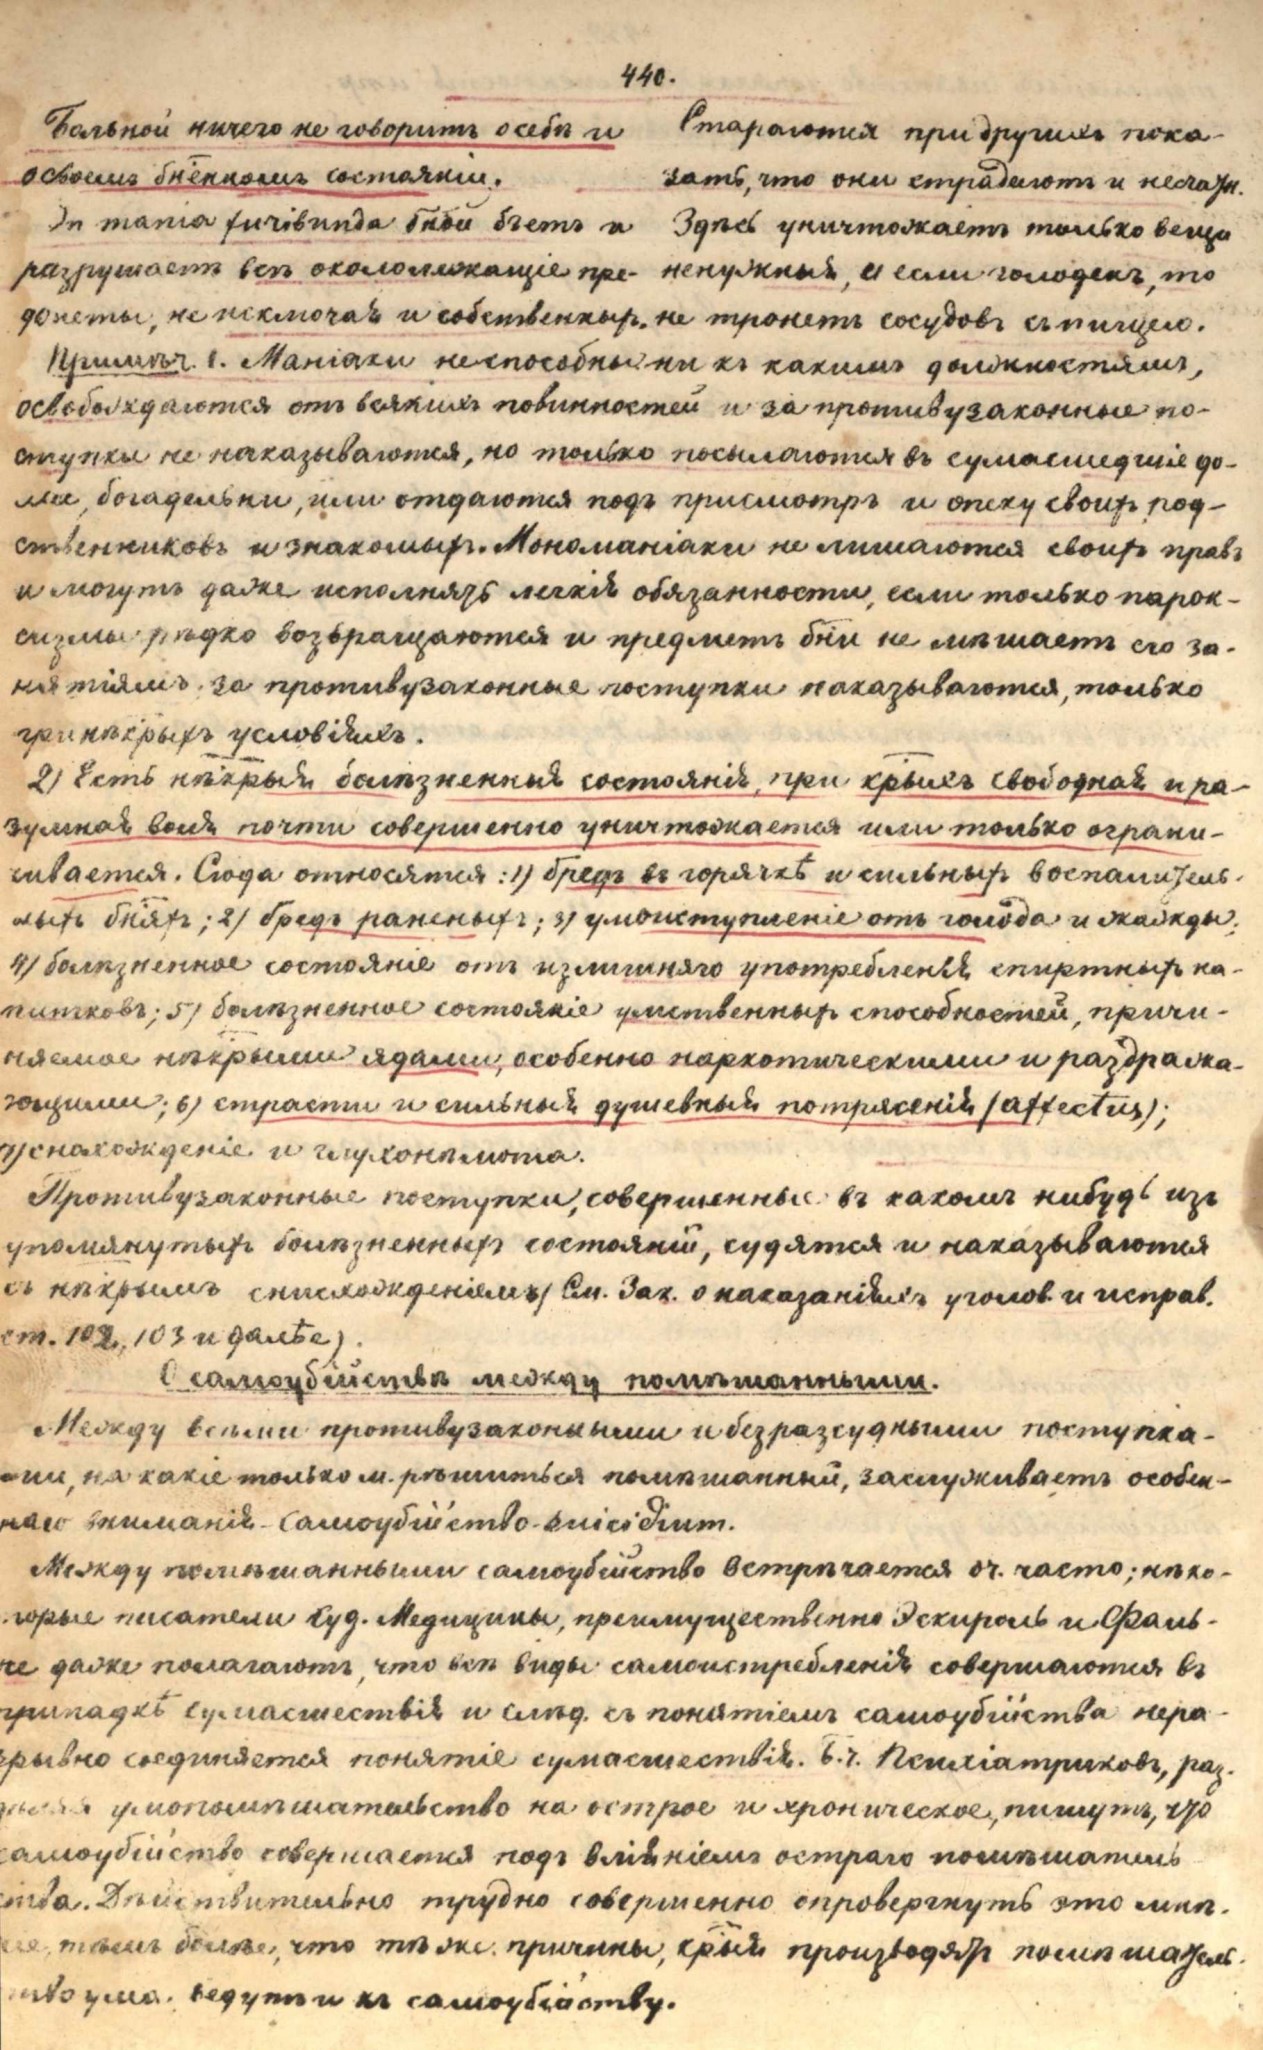 440.
Больной ничего не говоритъ о себѣ и
о своемъ бненномъ состоянiи.
In mania furibunda бной бьетъ и
разрушаетъ всѣ окололежащiе пре-
дметы, не исключая и собственныхъ.
Стараются при другихъ пока-
зать, что они страдаютъ и несчаст.
Здѣсь уничтожаетъ только вещи
ненужныя, и если голоденъ, то
не тронетъ сосудовъ съ пищею.
Примѣч. 1. Манiаки неспособны ни къ какимъ должностямъ,
освобождаются отъ всякихъ повинностей и за противузаконные по-
ступки не наказываются, но только посылаются въ сумасшедшiе до-
ма, богадельни, или отдаются подъ присмотръ и опеку своихъ род-
ственниковъ и знакомыхъ. Мономанiаки не лишаются своихъ правъ
и могутъ даже исполнять легкiя обязанности, если только парок-
сизмы рѣдко возвращаются и предметъ бни не мѣшаетъ его за-
нятiямъ. за противузаконные поступки наказываются, только
при нѣкрыхъ условiяхъ.
2) Есть нѣкрыя болѣзненныя состоянiя, при крыхъ свободная и ра-
зумная воля почти совершенно уничтожается или только ограни-
чивается. Сюда относятся: 1) бредъ въ горячкѣ и сильныхъ воспалитель-
ныхъ бняхъ; 2) бредъ раненыхъ; 3) умоиступленiе отъ голода и жажды;
4) болѣзненное состоянiе отъ излишняго употребленiя спиртныхъ на-
питковъ; 5) болѣзненное состоянiе умственныхъ способностей, причи-
няемое нѣкрыми ядами, особенно наркотическими и раздража-
ющими; 6) страсти и сильныя душевныя потрясенiя (affectus);
7) снахожденiе и глухонѣмота.
Противузаконные поступки, совершенные въ какомъ нибудь изъ
упомянутыхъ болѣзненныхъ состоянiй, судятся и наказываются
съ нѣкрымъ снисхожденiемъ (См. Зак. о наказанiяхъ уголов. и исправ.
ст. 102, 103 и далѣе).
О самоубiйствѣ между помѣшанными.
Между всѣми противузаконными и безразсудными поступка-
ми, на какiе только м. рѣшиться помѣшанный, заслуживаетъ особен-
наго вниманiя - самоубiйство - suicidium.
Между помѣшанными самоубiйство встрѣчается оч. часто; нѣко-
торые писатели Суд. Медицины, преимущественно Эскироль и Фаль-
ре даже полагаютъ, что всѣ виды самоистребленiя совершаются въ
припадкѣ сумасшествiя и слѣд. съ понятiемъ самоубiйства нера-
зрывно соединяется понятiе сумасшествiя. б. ч. Психiатриковъ, раз-
дѣляя умопомѣшательство на острое и хроническое, пишутъ, что
самоубiйство совершается подъ влiянiемъ остраго помѣшатель-
ства. Дѣйствительно трудно совершенно опровергнуть это мнѣ-
нiе, тѣмъ болѣе, что тѣ же причины, крыя производятъ помѣшатель-
ство ума. ведутъ и къ самоубiйству.